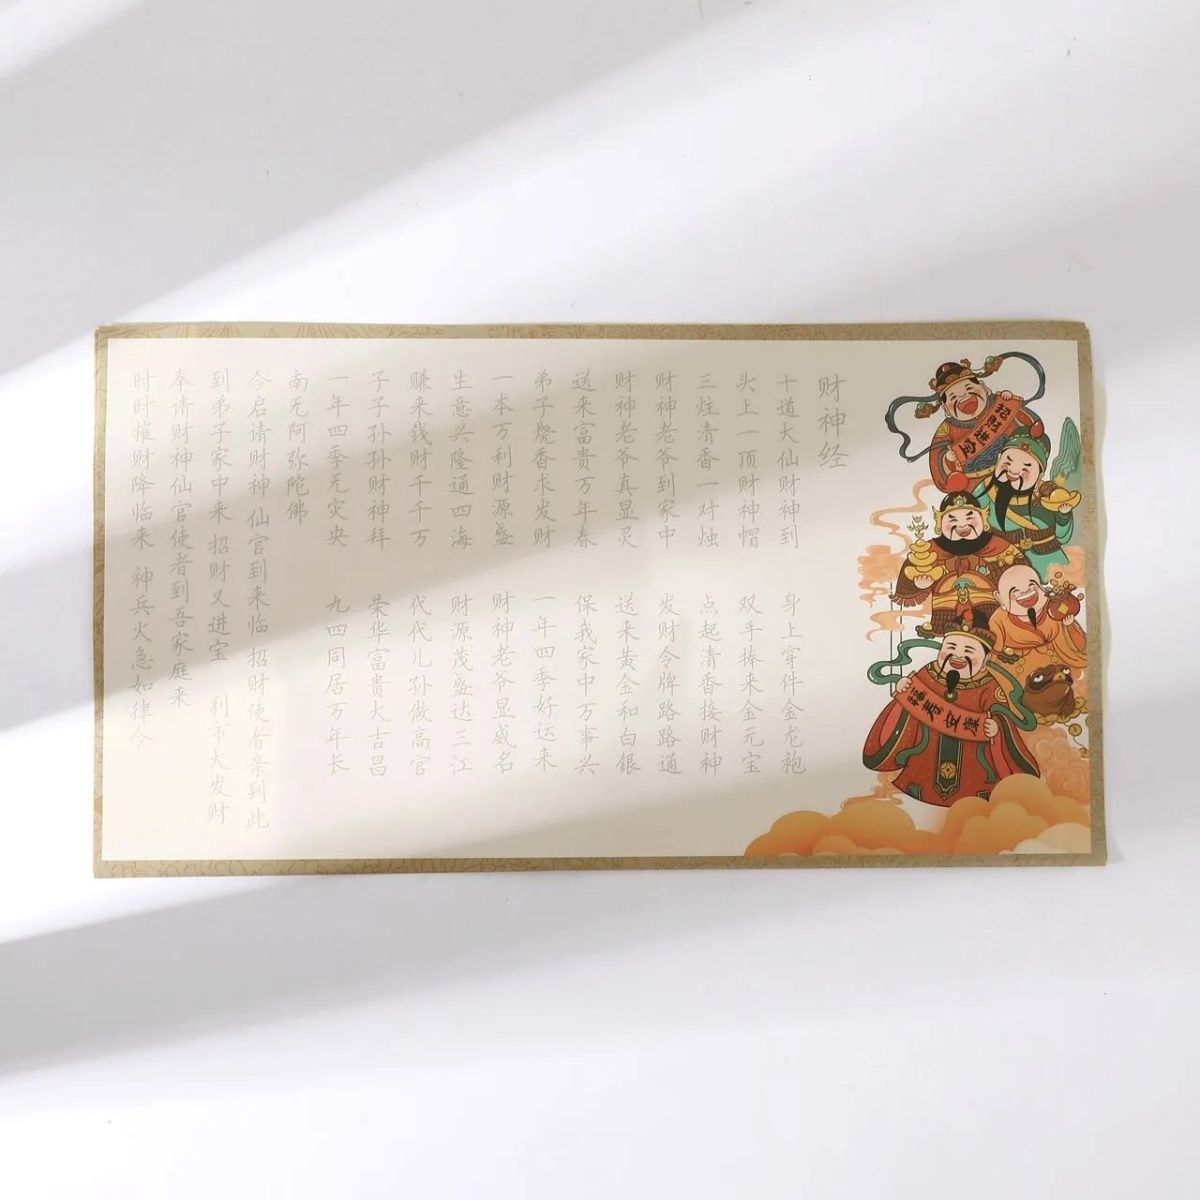 财神经
十道大仙财神到 身上穿件金龙袍
头上一顶财神帽 双手捧来金元宝
三炷清香一对烛 点起清香接财神
财神老爷到家中 发财令牌路路通
财神老爷真显灵 送来黄金和白银
送来富贵万年春 保我家中万事兴
弟子烧香求发财 一年四季好运来
一本万利财源盛 财神老爷显威名
生意兴隆通四海 财源茂盛达三江
赚来钱财千千万 代代儿孙做高官
子子孙孙财神拜 荣华富贵大吉昌
一年四季无灾央 九四同居万年长
南无阿弥陀佛
今启请财神仙官到来临招财使者亲到此
到弟子家中来招财又进宝 利市大发财
奉请财神仙官使者到吾家庭来
时时摧财降临来 神兵火急如律令
招财进宝
福寿安康